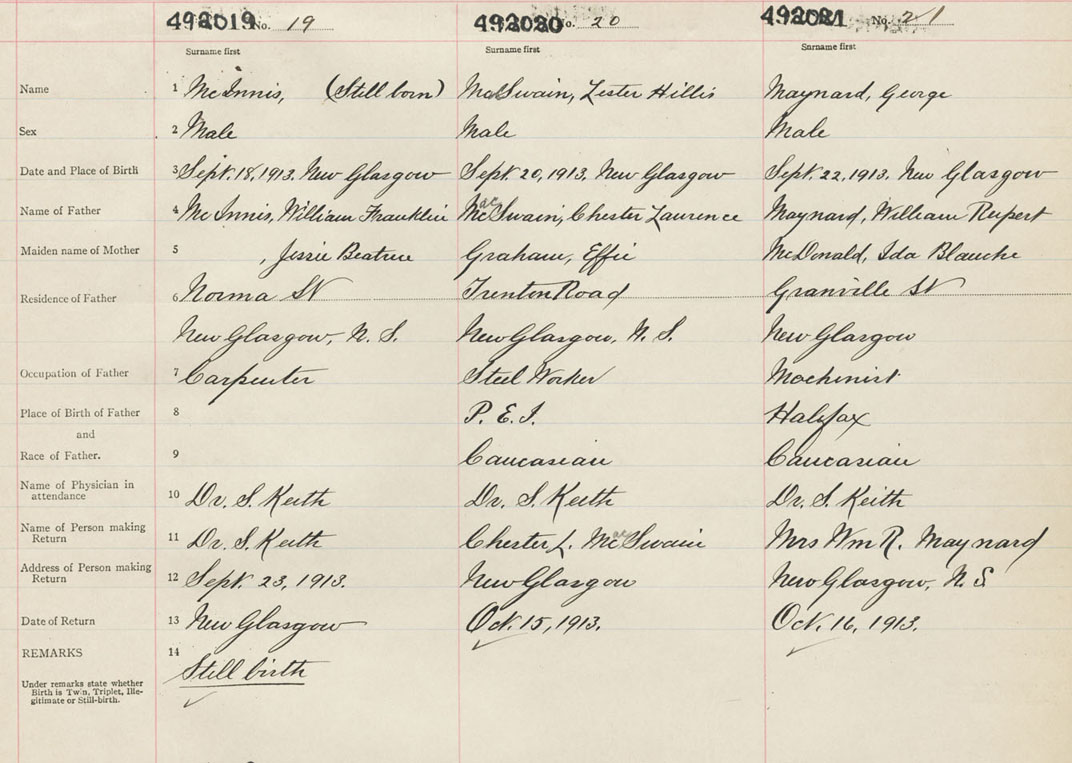 492019 No. 19 492020 No. 20 492021 No. 21
Surname first Surname first Surname first
Name 1 McInnis, (Still born) McSwain, Lester Hillis Maynard, George
Sex 2 Male Male Male
Date and Place of Birth 3 Sept. 18, 1913. New Glasgow Sept. 20, 1913. New Glasgow Sept. 22, 1913. New Glasgow
Name of Father 4 McInnis, William Franklin MacSwain, Chester Laurence Maynard, William Rupert
Maiden name of Mother 5 , Jessie Beatrice Graham, Effie McDonald, Ida Blanche
Residence of Father 6 Norma St Trenton Road Granville St
New Glasgow, N. S. New Glasgow, N. S. New Glasgow
Occupation of Father 7 Carpenter Steel Worker Machinist
Place of Birth of Father 8 P. E. I. Halifax
and
Race of Father. 9 Caucasian Caucasian
Name of Physician in
attendance 10 Dr. S. Keith Dr. S. Keith Dr. S. Keith
Name of Person making
Return 11 Dr. S. Keith Chester L. MacSwain Mrs Wm R. Maynard
Address of Person making
Return 12 Sept. 23, 1913. New Glasgow New Glasgow, N. S
Date of Return 13 New Glasgow Oct. 15, 1913. Oct. 16, 1913.
REMARKS 14 Still birth
Under remarks state whether
Birth is Twin, Triplet, Ille-
gitimate or Still-birth.